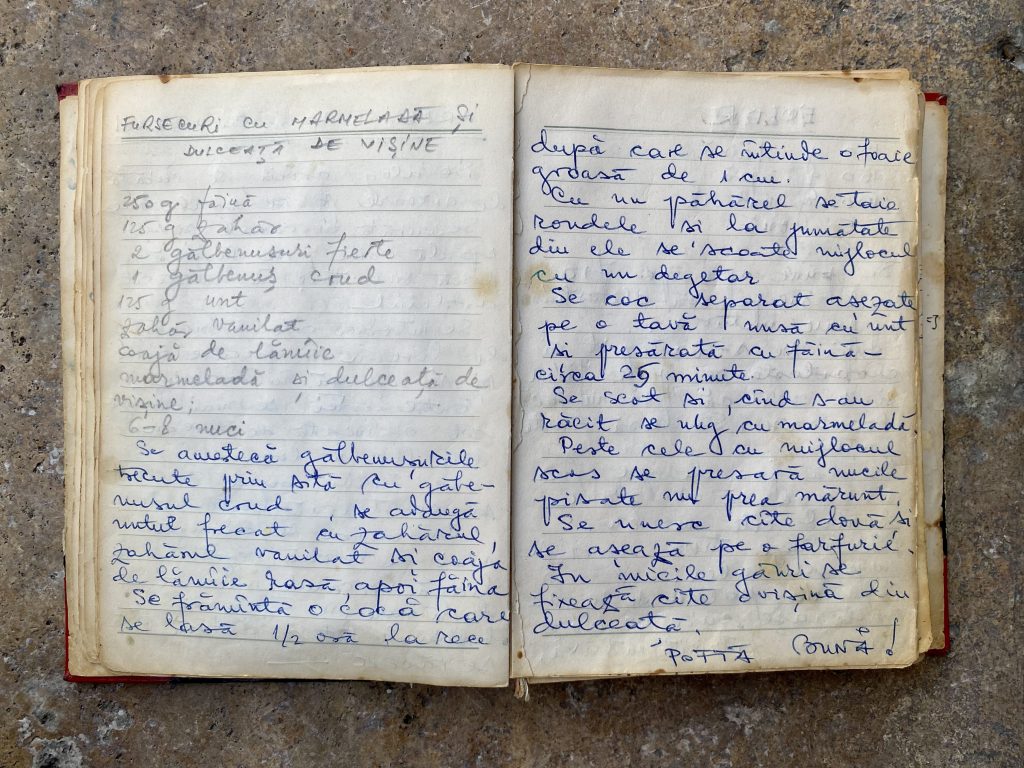 FURSECURI CU MARMELADĂ ȘI
DULCEAȚĂ DE VIȘINE
250 g făină
125 g zahăr
2 gălbenușuri fierte
1 gălbenuș crud
125 g unt
zahăr vanilat
coajă de lămîie
marmeladă și dulceață de
vișine;
6-8 nuci
Se amestecă gălbenușurile
trecute prin sită cu gălbe-
nușul crud, se adaugă
untul frecat cu zahărul,
zahărul vanilat și coaja
de lămîie rasă apoi făina
Se frămîntă o cocă care
se lasă 1/2 oră la rece
după care se întinde o foaie
groasă de 1 cm.
Cu un păhărel se taie
rondele si la jumătate
din ele se scoate mijlocul
cu un degetar
Se coc separat așezate
pe o tavă unsă cu unt
si presărată cu făină -
circa 25 minute.
Se scot si, cînd s-au
răcit se ung cu marmeladă
Peste cele cu mijlocul
scos se presară nucile
pisate nu prea mărunt.
Se unesc cîte două si
se așează pe o farfurie.
In micile găuri se
fixează cîte o vișină din
dulceată.
POFTĂ BUNĂ!